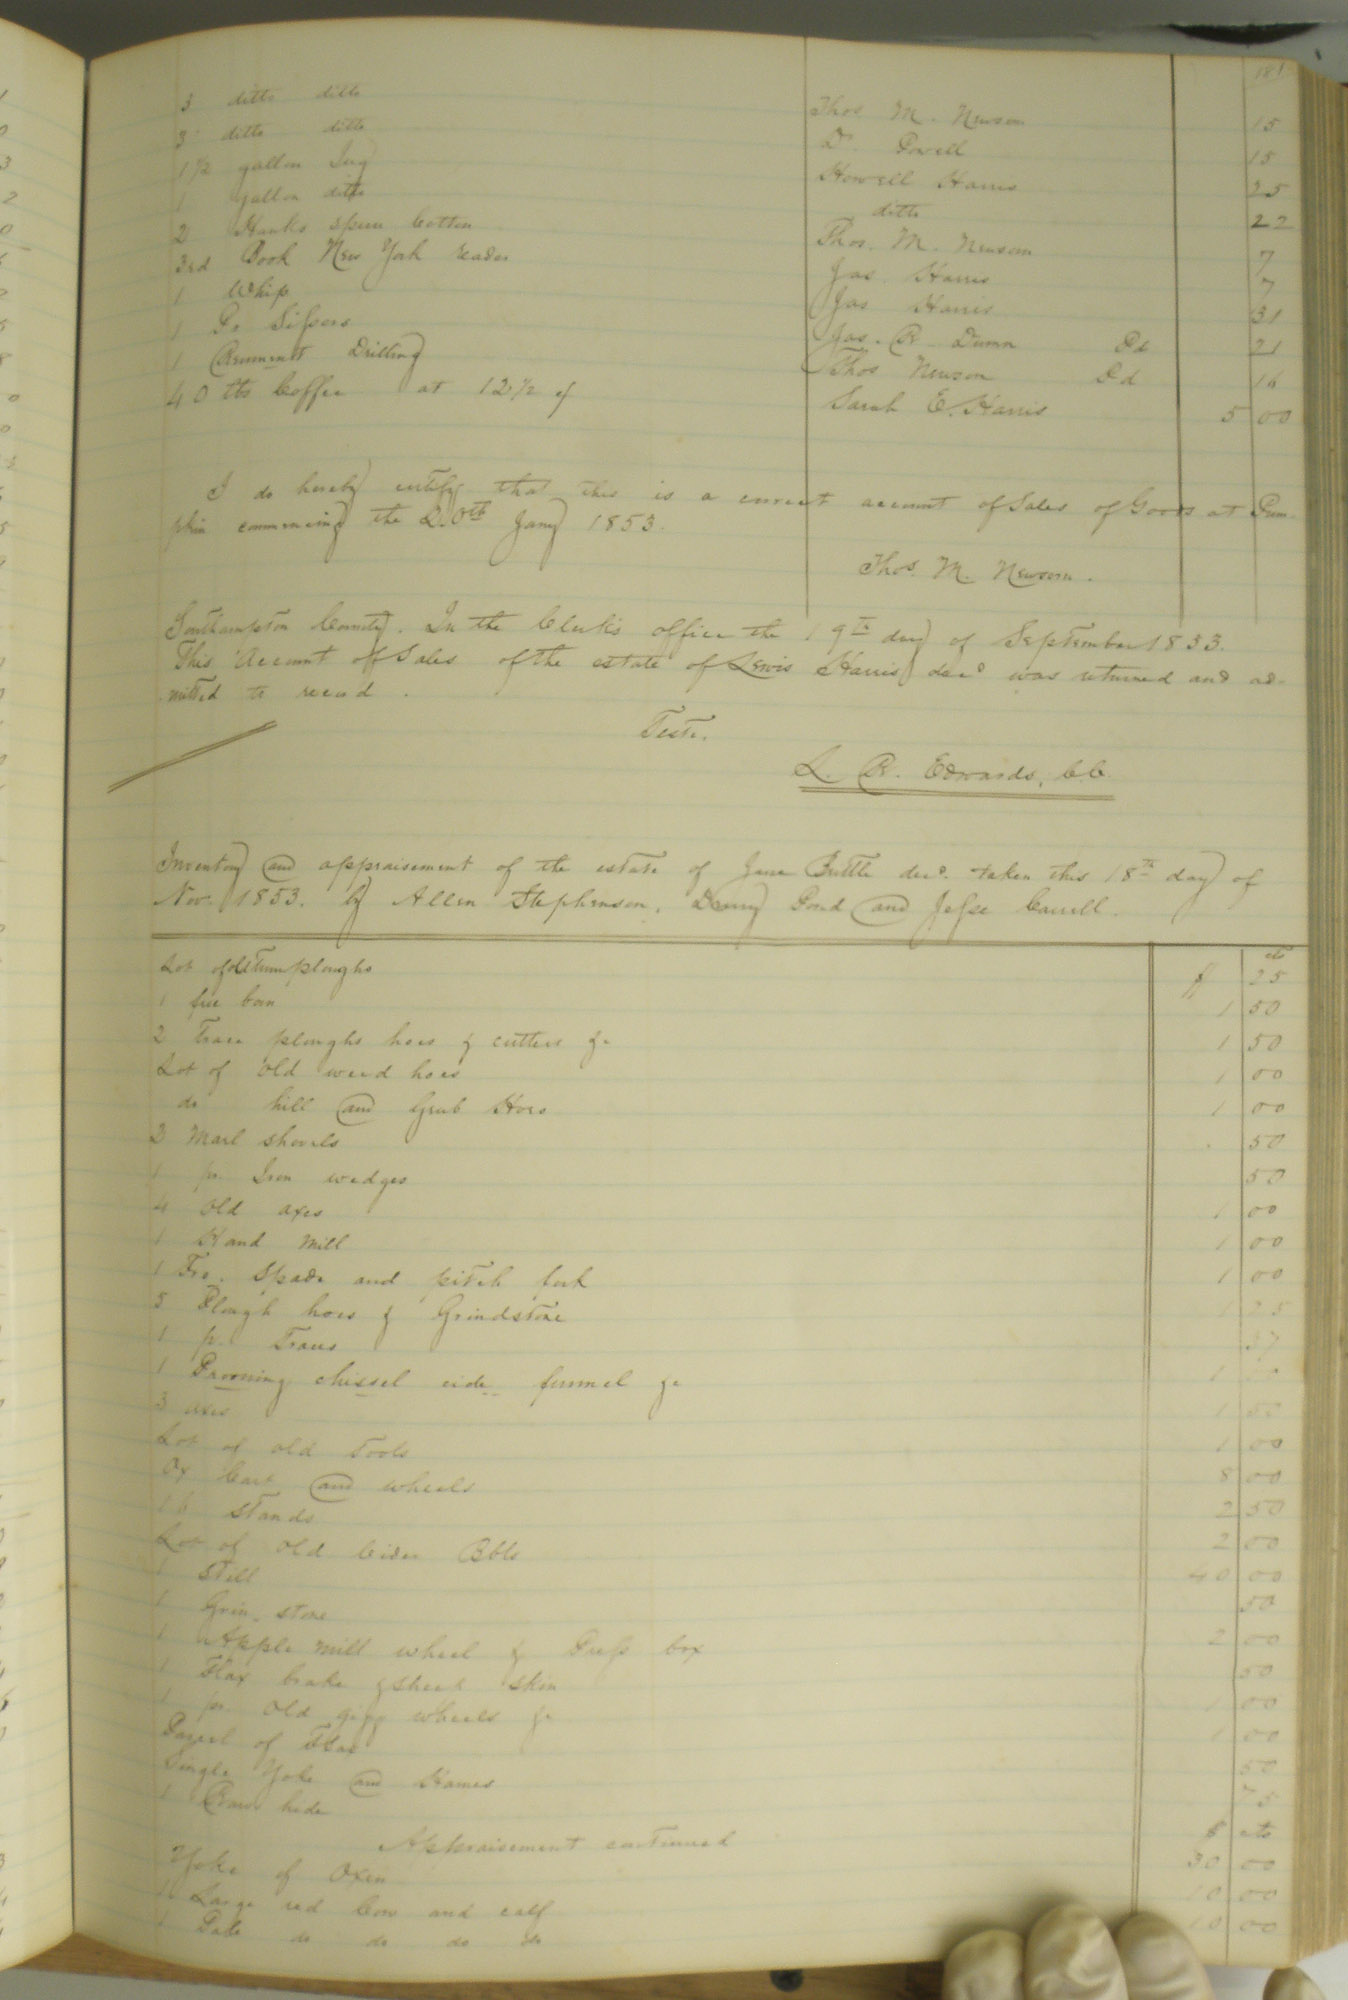 181
3 ditto ditto Thos M. Newsom 15
3 ditto ditto D. Powell 15
1 1/2 gallon Jug Howell Harris 25
1 gallon ditto ditto 22
2 Hanks spun Cotton Thos. M. Newsom 7
3rd Book New York reader Jas. Harris 7
1 Whip Jas Harris 31
1 Pr Sissors Jas. R. Dunn Pd 21
1 Remnent Drilling Thos Newsom Pd 16
40 lbs Coffee at 12 1/2 c Sarah E. Harris 5 00
I do hereby certify that this is a correct account of Sales of Goods at Pum-
pkin commencing the 20th Jany 1853.
Thos. M. Newsom.
Southampton County. In the Clerk's office the 19th day of September 1853.
This Account of Sales of the estate of Lewis Harris decd was returned and ad-
mitted to record.
Teste.
L. R. Edwards, C.C.
Inventory and appraisement of the estate of Jane Buttle decd. taken this 18th day of
Nov. 1853. by Allen Stephenson, Drury Pond and Jesse Carrell.
Lot of old ploughs $ cts 25
1 free born 1 50
2 Trace ploughs hoes & cutters &c 1 50
Lot of old weed hoes 1 00
do hill and Grub Hoes 1 00
2 Marl shovels 50
1 pr. Iron wedges 50
4 old axes 1 00
1 Hand Mill 1 00
1 Fro. Spade and pitch fork 1 00
5 Plough hoes & Grindstone 1 25
1 pr. Traces 37
1 Prooning chissel funnel &c 1
3 axes 1 50
Lot of old Tools 1 00
Ox Cart and wheels 8 00
16 Stands 2 50
Lot of old Cider Bbls 2 00
1 Still 40 00
1 Grin. stone 50
1 Apple Mill wheel & Press box 2 00
1 Flax brake & sheep skin 50
1 pr. old gigg wheels &c 1 00
Parcel of Flax 1 00
Single Yoke and Hames 50
1 Raw hide 75
Appraisement continued $ cts
Yoke of Oxen 30 00
1 Large red Cow and calf 10 00
1 Pale do do do do 10 00